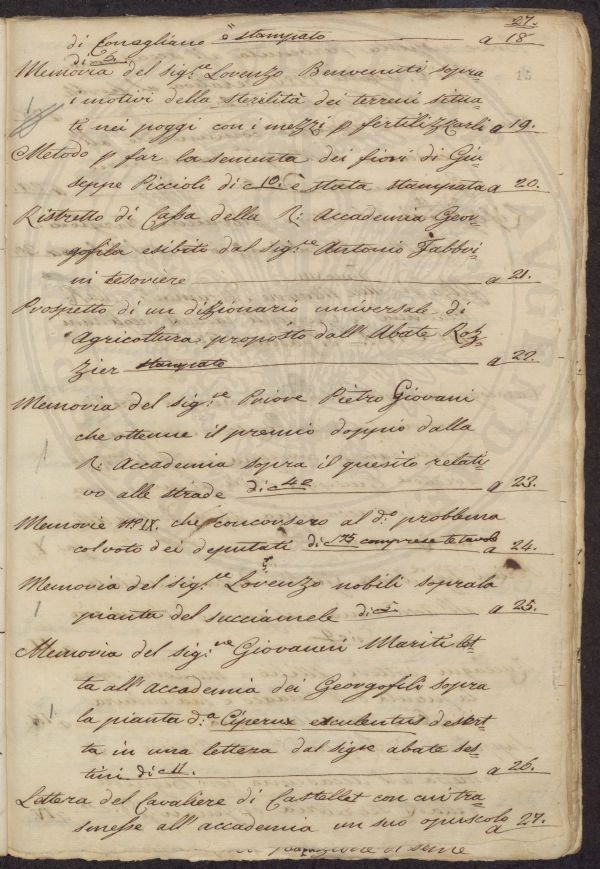 27.
di Conegliano è stampato a 18.
di c 6.
Memoria del sig.re Lorenzo Benvenuti sopra
i motivi della sterilità dei terreni situa=
ti nei poggi con i mezzi p fertilizzarli a 19.
Metodo p far la sementa dei fiori di Giu
seppe Piccioli di c 10. è stata stampata a 20.
Ristretto di Cassa della R: Accademia Geor=
gofila esibiti dal sig.re Antonio Fabbri=
ni tesoriere a 21.
Prospetto di un dizionario universale di
Agricoltura proposto dall' Abate Roz=
zier stampato a 22.
Memoria del sig.re Priore Pietro Giovani
che ottenne il premio doppio dalla
R: Accademia sopra il quesito relati=
vo alle strade di c 42 a 23.
Memorie n.o IX. che concorsero al d.o problema
col voto dei deputati di 175 comprese le tavole
a 24.
Memoria del sig.re Lorenzo nobili sopra la
pianta del succiamele di c 5. a 25.
Memoria del sig.re Giovanni Mariti let=
ta all' Accademia dei Georgofili sopra
la pianta d.a Ciperux esculentus descrit=
ta in una lettera dal sig.re abate ses=
tini di c 11. a 26.
Lettera del Cavaliere di Castellet con cui tra=
smesse all' accademia un suo opuscolo
a 27.
di seme